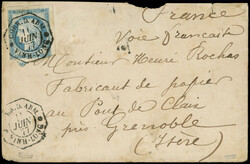 France
Voie Française
Monsieur Henri Rochas
Fabricant de papier
au Pont de Claix
près Grenoble
(Isère)
JUIN
JUIN